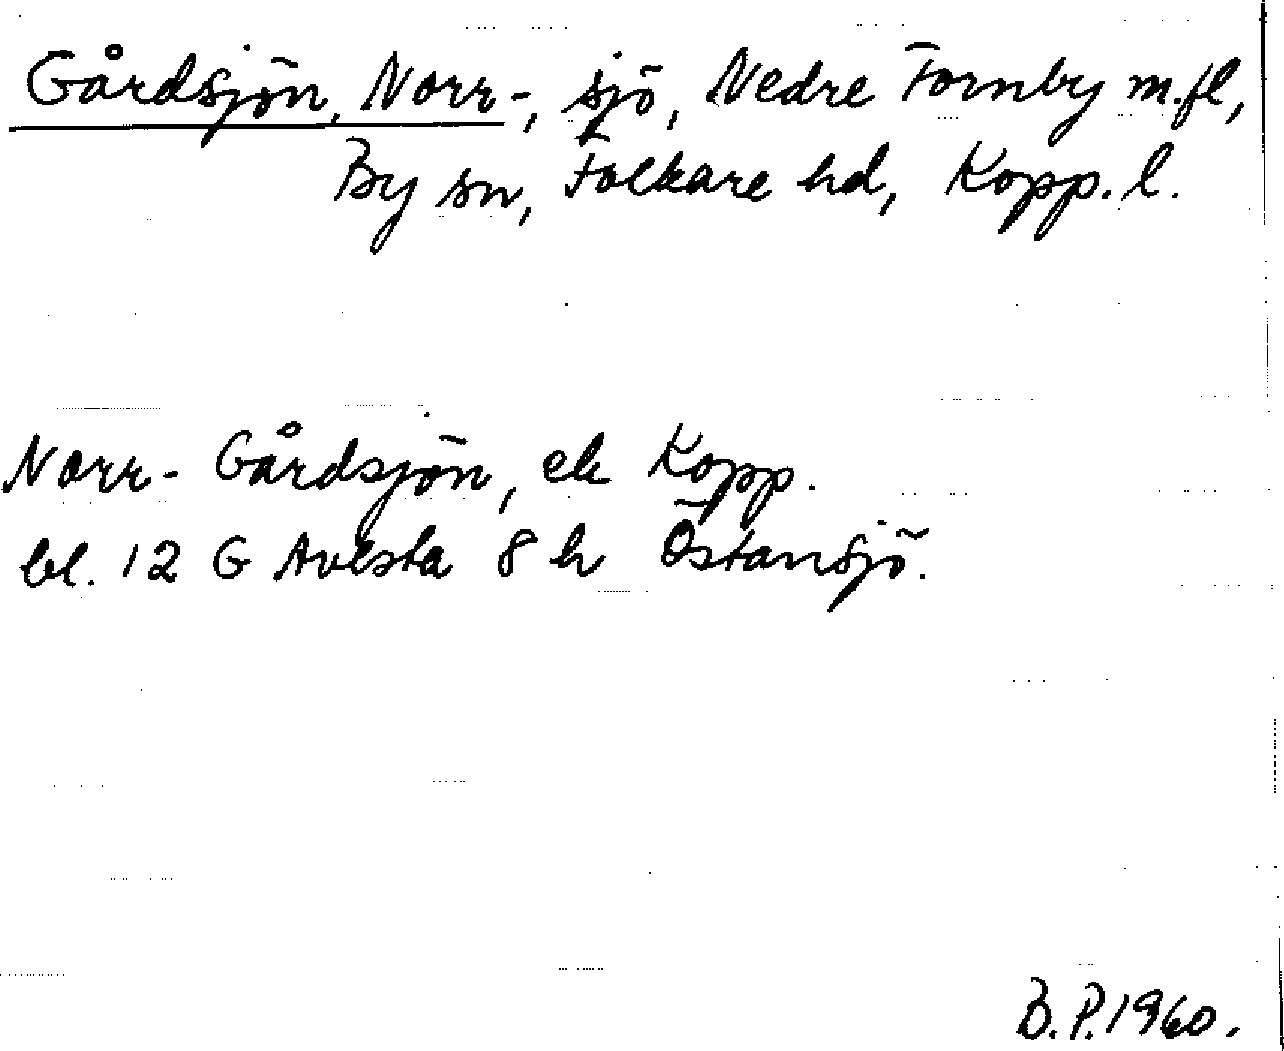 Gårdsjön, Norr-, sjö, Nedre Fornby m.fl,
By sn, Folkare hd, Kopp. l.
Norr- Gårdsjön, ek Kopp.
bl. 12 G Avesta 8 h Östansjö.
B.P. 1960.